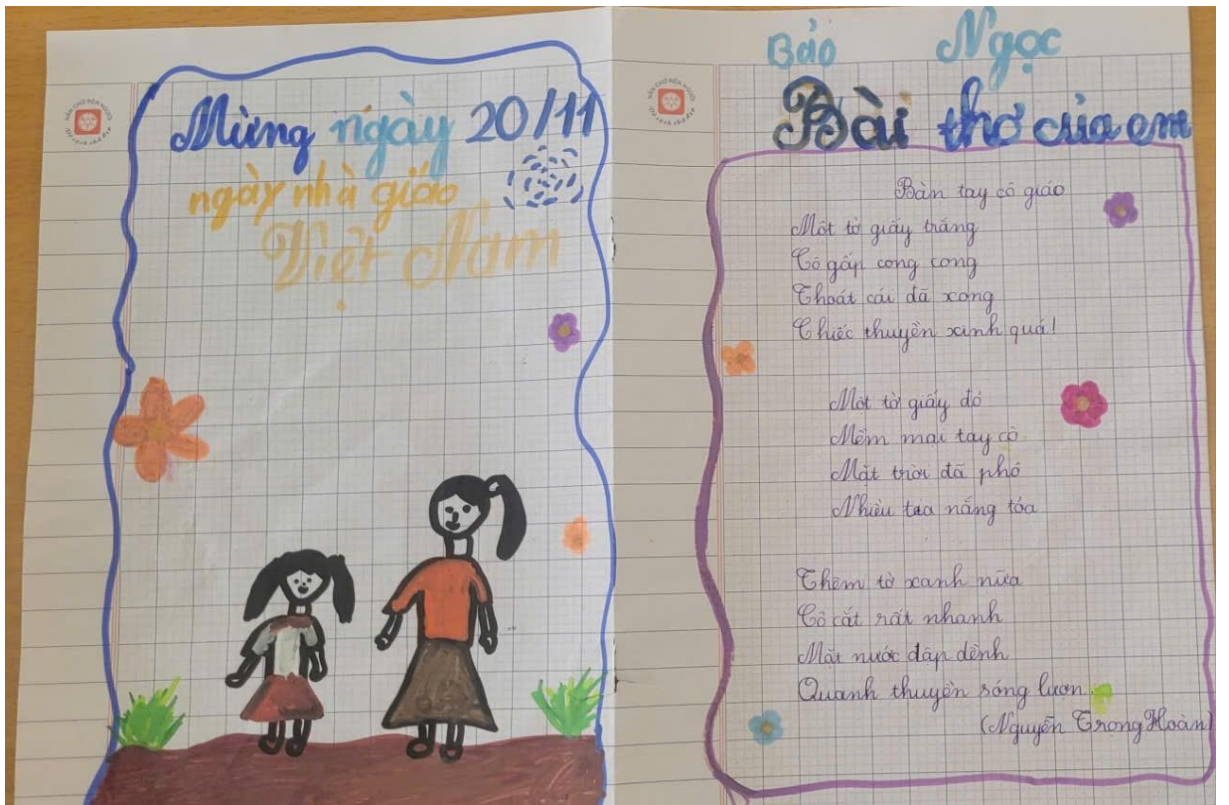 Mừng ngày 20/11
ngày nhà giáo
Việt Nam
Bảo Ngọc
Bài thơ của em
Bàn tay cô giáo
Một tờ giấy trắng
Cô gấp cong cong
Thoát cái đã xong
Chiếc thuyền xinh quá!
Một tờ giấy đỏ
Mềm mại tay cô
Mặt trời đã phô
Nhiều tia nắng tỏa
Thêm tờ xanh nữa
Cô cắt rất nhanh
Mặt nước dập dềnh
Quanh thuyền sóng lượn.
(Nguyễn Trọng Hoàn)